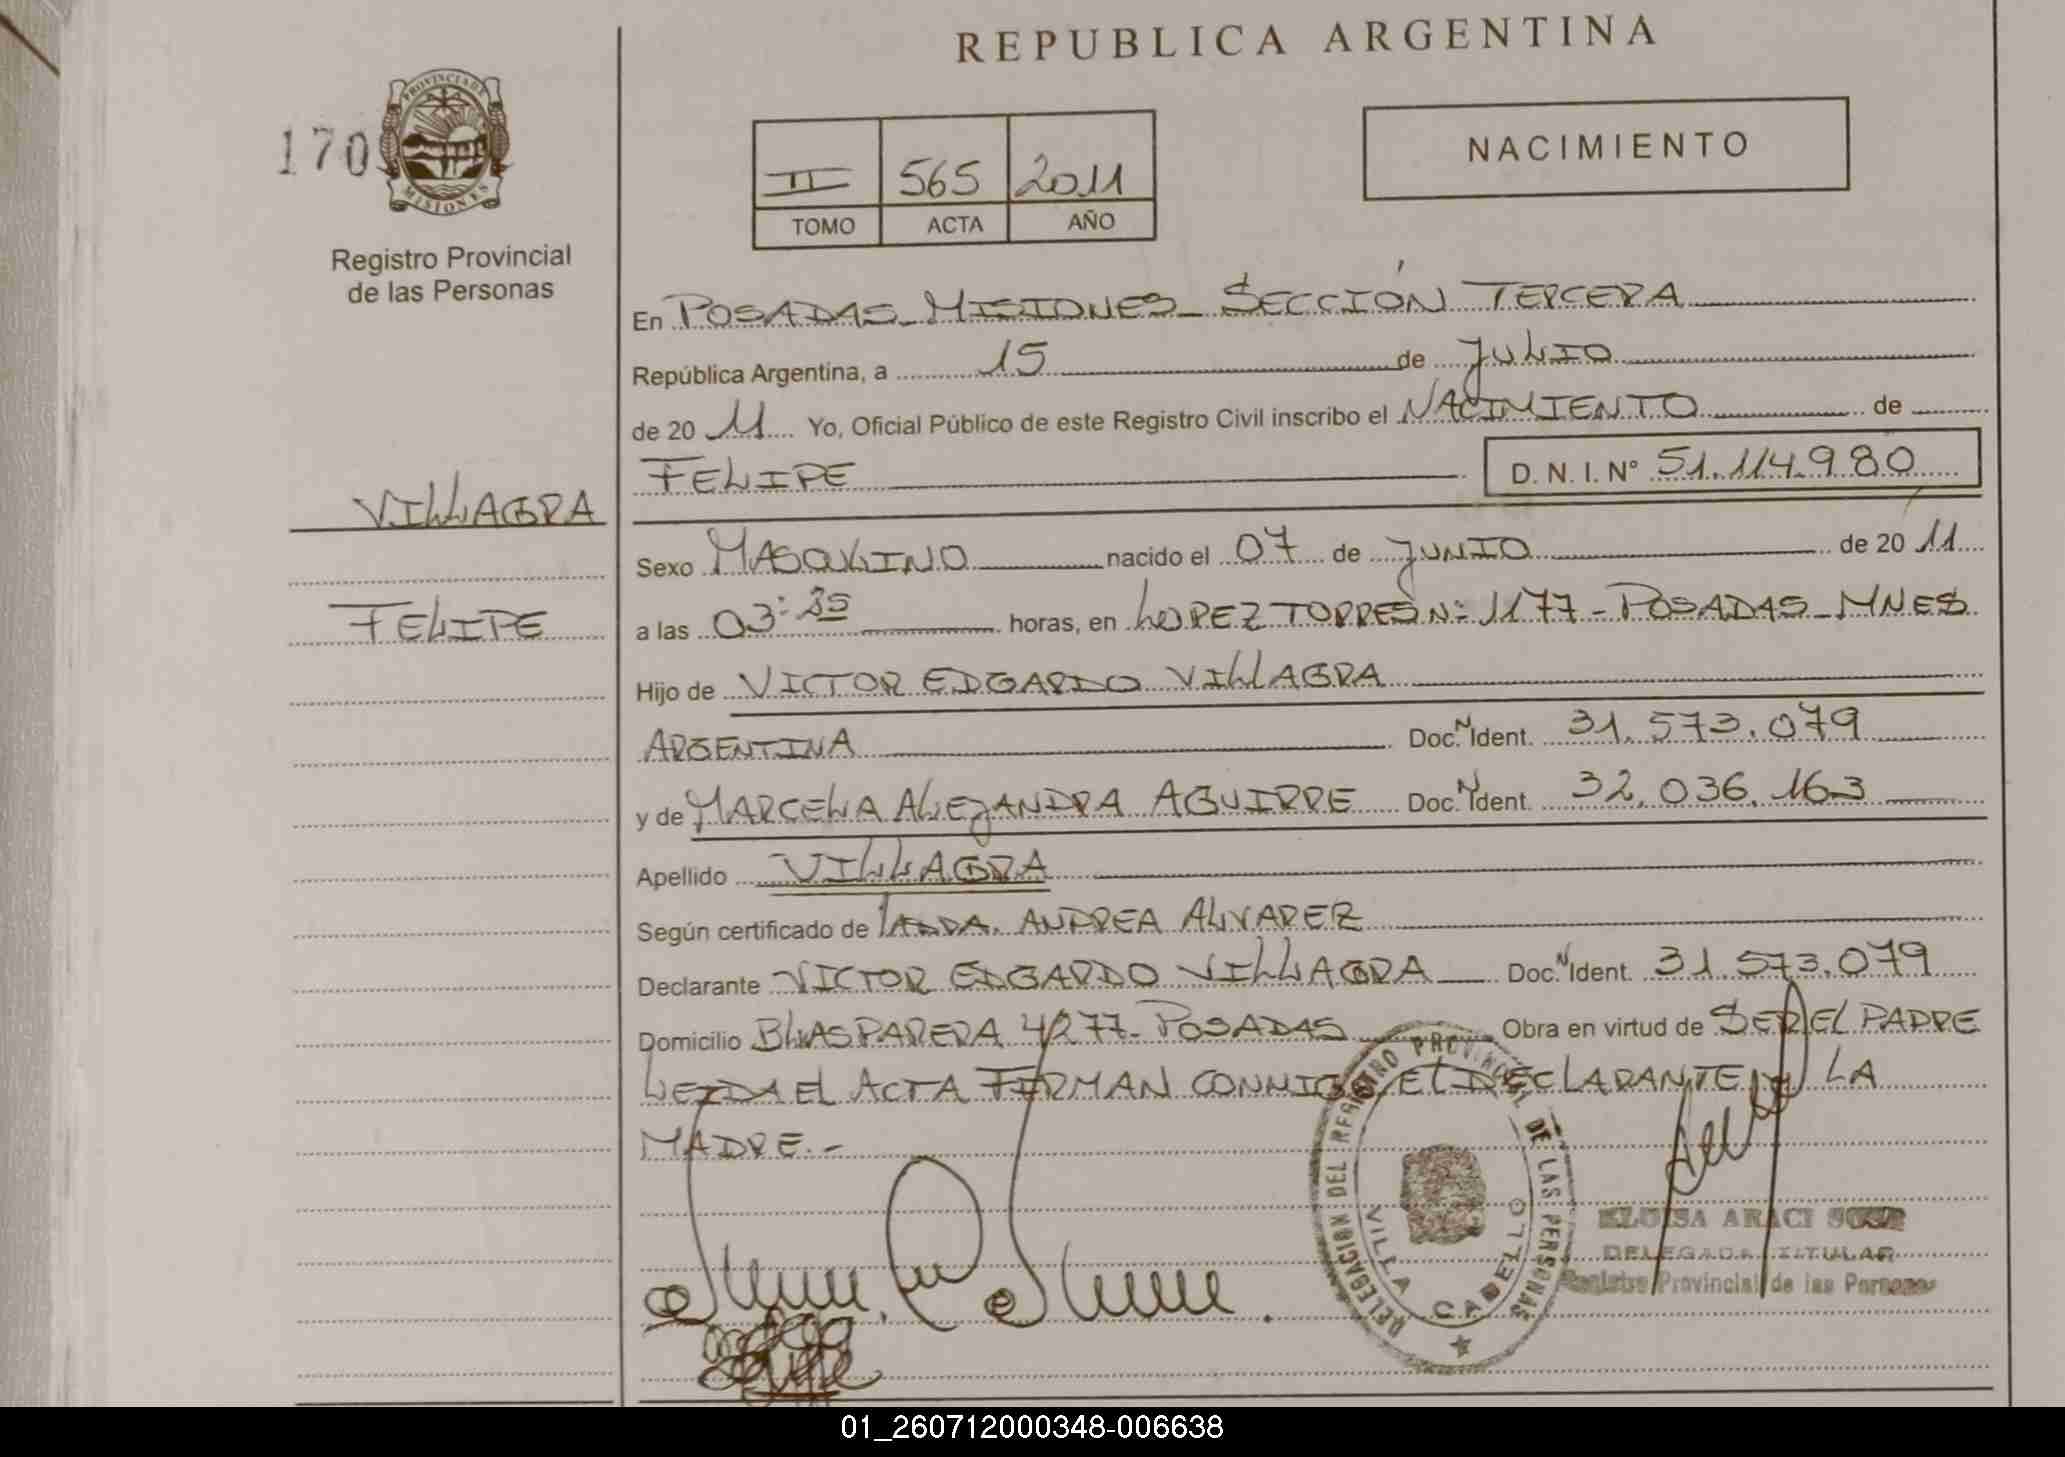 REPUBLICA ARGENTINA
170
PROVINCIA DE
MISIONES
Registro Provincial
de las Personas
II 565 2011
TOMO ACTA AÑO
NACIMIENTO
En POSADAS - MISIONES - SECCIÓN TERCERA
República Argentina, a 15 de JULIO
de 20 11 Yo, Oficial Público de este Registro Civil inscribo el NACIMIENTO de
FELIPE D. N. I. Nº 51.114.980
VILLAGRA
Sexo MASCULINO nacido el 07 de JUNIO de 20 11
FELIPE
a las 03: horas, en LOPEZ TORRES Nº 1177 - POSADAS - MNES
Hijo de VICTOR EDGARDO VILLAGRA
ARGENTINA Doc. N Ident. 31.573.079
y de MARCELA ALEJANDRA AGUIRRE Doc. N Ident. 32.036.163
Apellido VILLAGRA
Según certificado de ANDREA ALVAREZ
Declarante VICTOR EDGARDO VILLAGRA Doc. N Ident. 31.573.079
Domicilio BLAS PARERA 4277 - POSADAS Obra en virtud de SER EL PADRE
LEIDA EL ACTA FIRMAN CONMIGO EL DECLARANTE y LA
MADRE.-
DELEGACION DEL REGISTRO PROVINCIAL DE LAS PERSONAS
VILLA CABELLO
ELOISA ARACI SOSA
DELEGADA TITULAR
Registro Provincial de las Personas
01_260712000348-006638